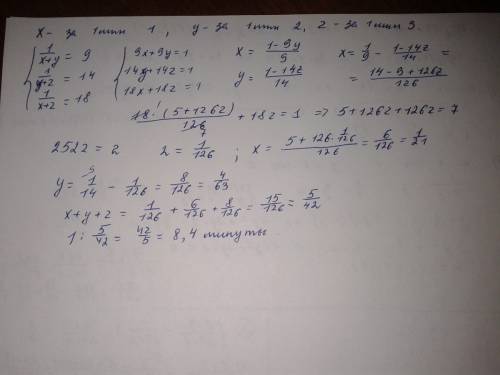 x - за 1 мин 1, y - за 1 мин 2, z - за 1 мин 3.
1/(x+y) = 9   9x+9y=1   x = (1-9y)/9   x = 1/9 - (1-14z)/14 =
1/(y+z) = 14   14y+14z=1   y = (1-14z)/14   = (14-9+126z)/126
1/(x+z) = 18   18x+18z=1
18·(5+126z)/126 + 18z = 1 => 5+126z+126z=7
252z = 2   z = 1/126 ; x = (5+126·1/126)/126 = 6/126 = 1/21
y = 1/14 - 1/126 = 8/126 = 4/63
x+y+z = 1/126 + 6/126 + 8/126 = 15/126 = 5/42
1 : 5/42 = 42/5 = 8,4 минуты